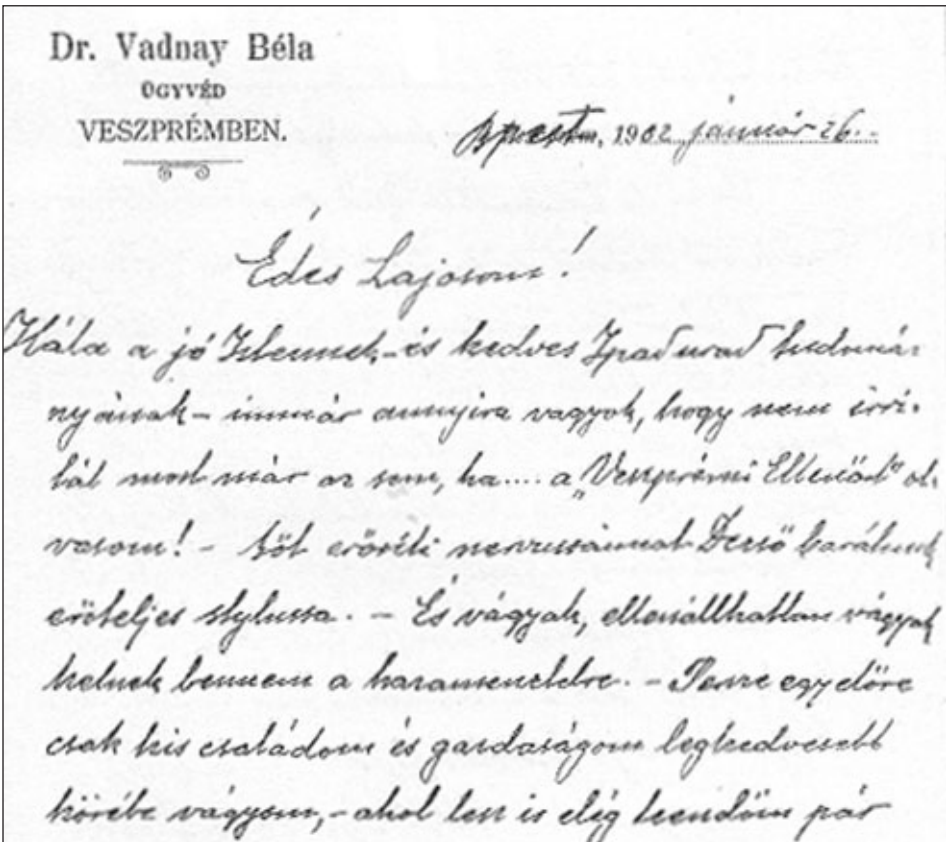 Dr. Vadnay Béla
ÜGYVÉD
VESZPRÉMBEN.
Bpesten, 1902 január 26.
Édes Lajosom!
Hála a jó Istennek, - és kedves Ipad urad tudomá-
nyának - immár annyira vagyok, hogy nem irri-
tál most már az sem, ha.... a "Veszprémi Ellenőrt" ol-
vasom! - Sőt erősíti nervusaimat Dezső barátunk
erőteljes stylussa. - És vágyak, ellenállhatlan vágyak
kelnek bennem a hazamenetelre. - Persze egyelőre
csak kis családom és gazdaságom legkedvesebb
körébe vágyom, - ahol lesz is elég teendőm pár